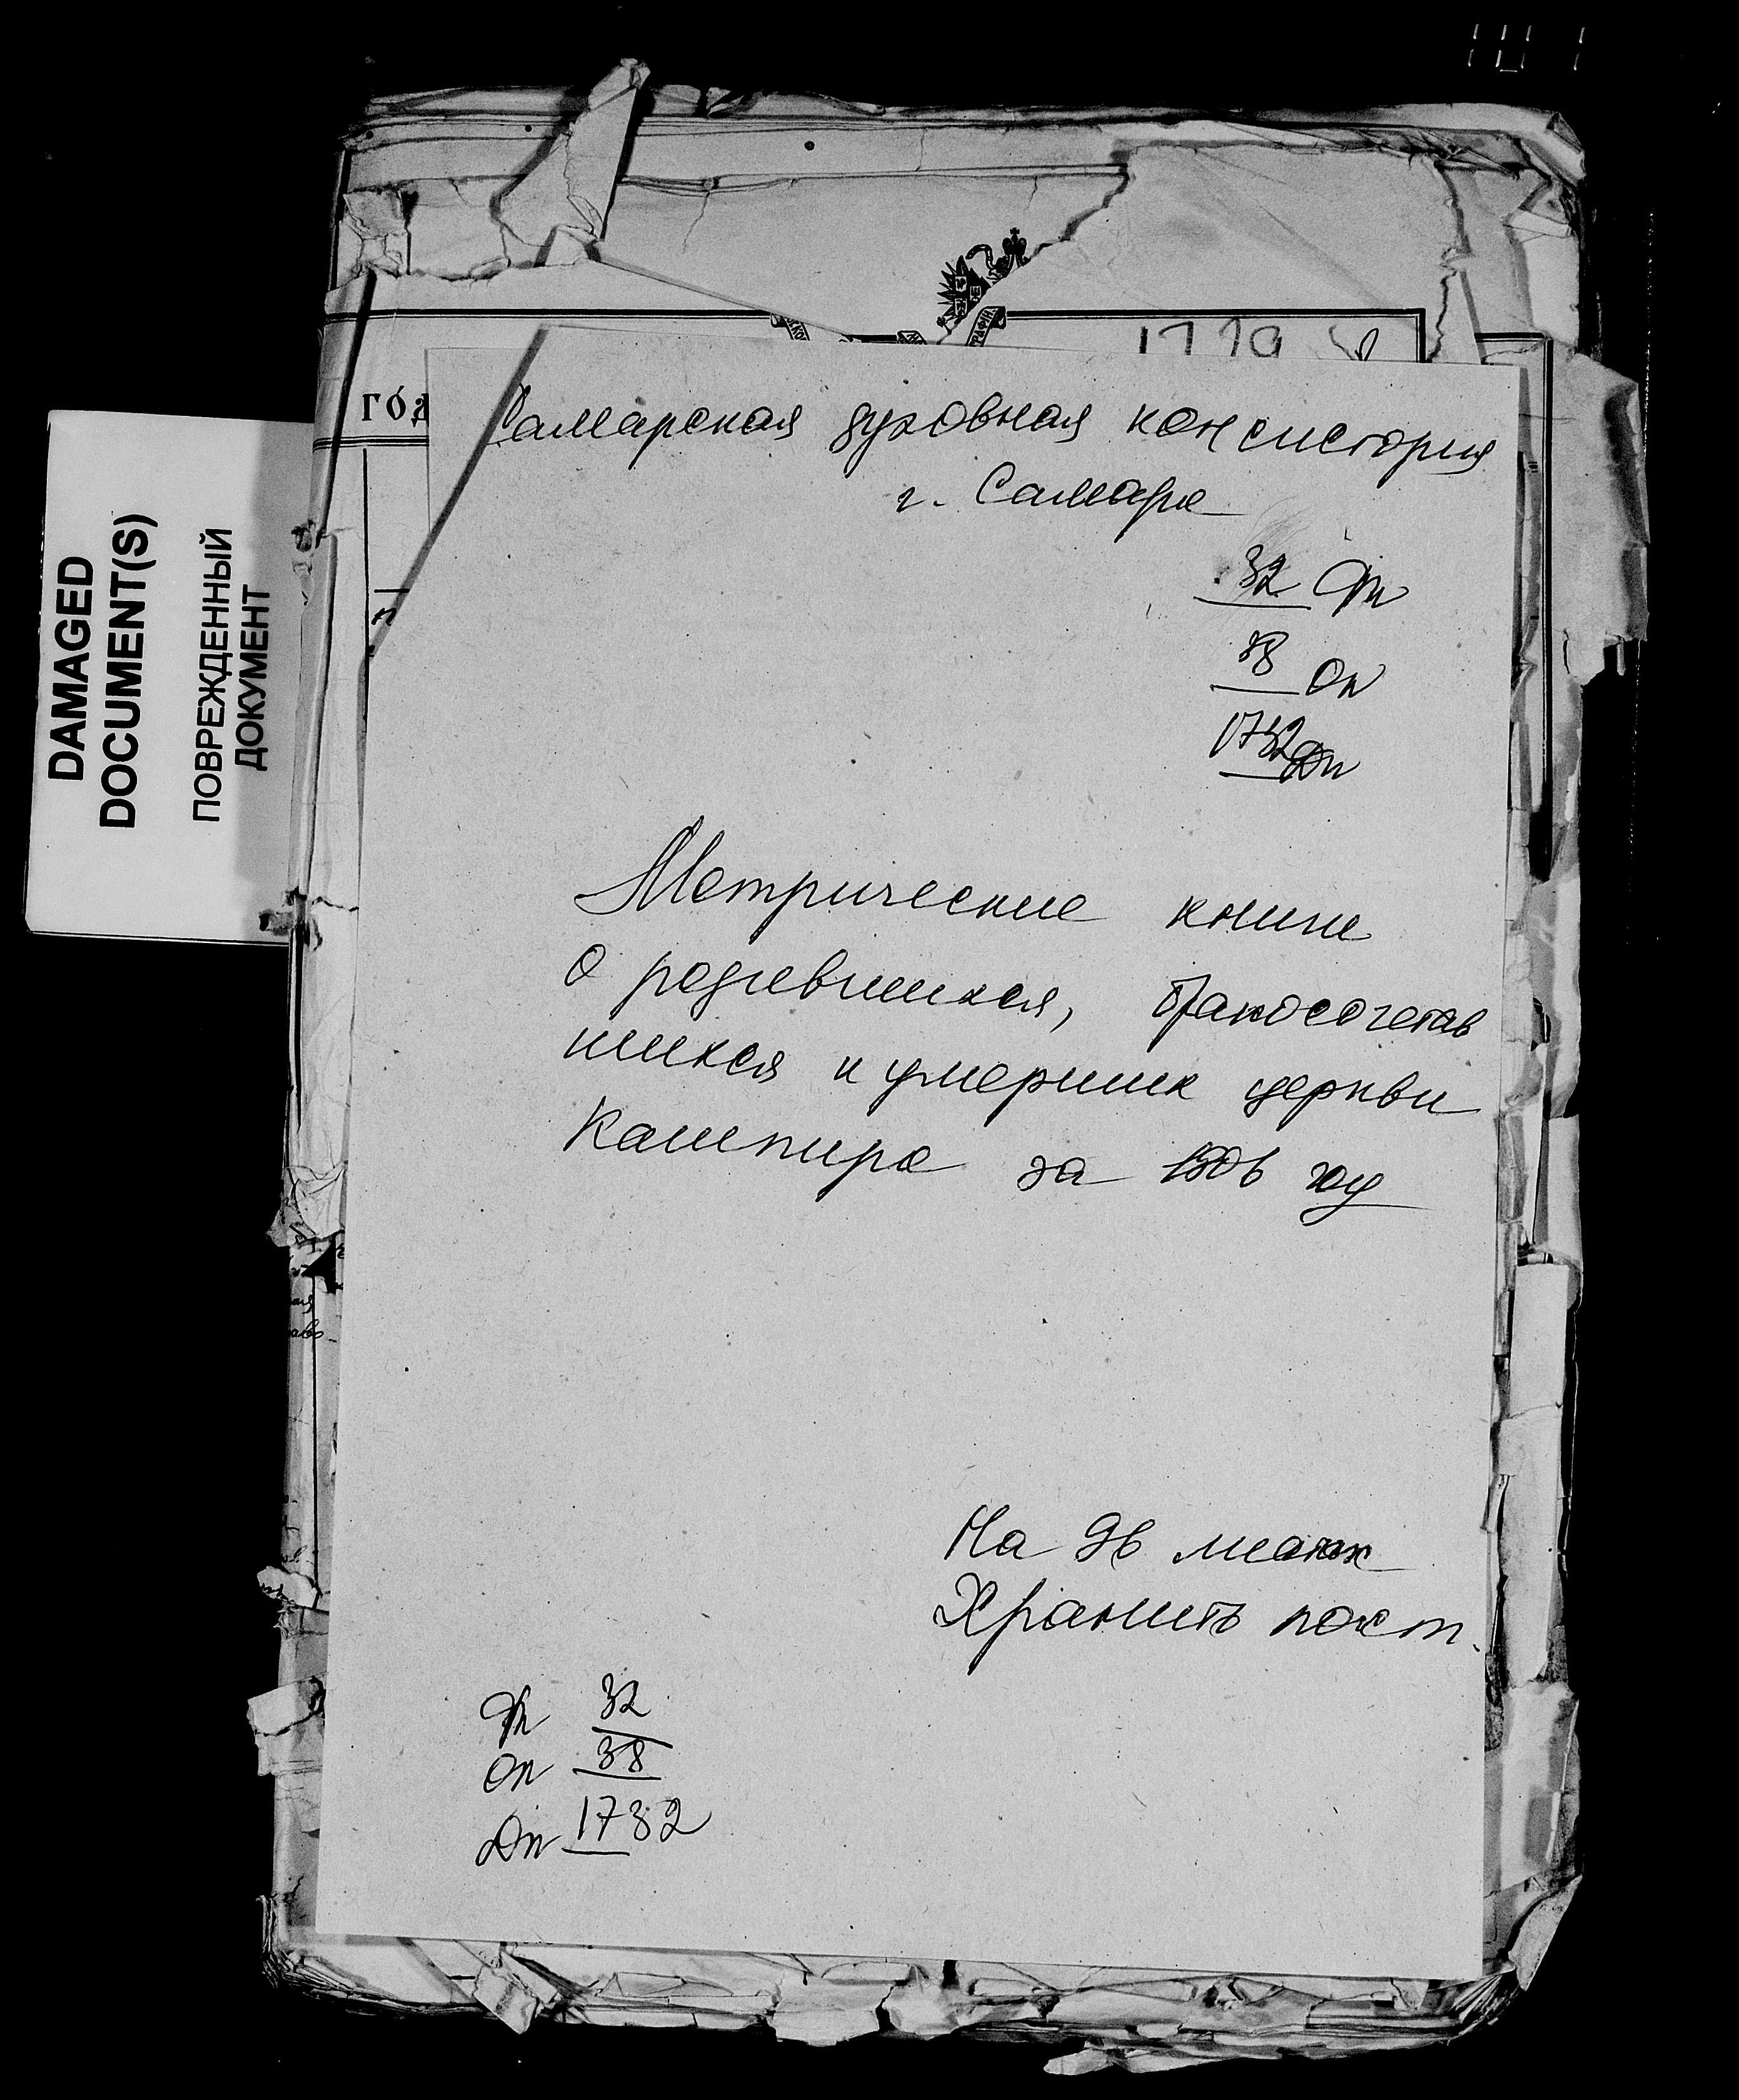 DAMAGED
DOCUMENT(S)
ПОВРЕЖДЕННЫЙ
ДОКУМЕНТ
ГОД
Самарская духовная консистория
г. Самара
32 Фп
Оп
1732 Дп
Метрические книги
о родившихся, бракосочетав
шихся и умерших церкви
Кашпира за 1906 год
На 96 листах
Хранить пост.
Фп 32
Оп 38
Дп 1732